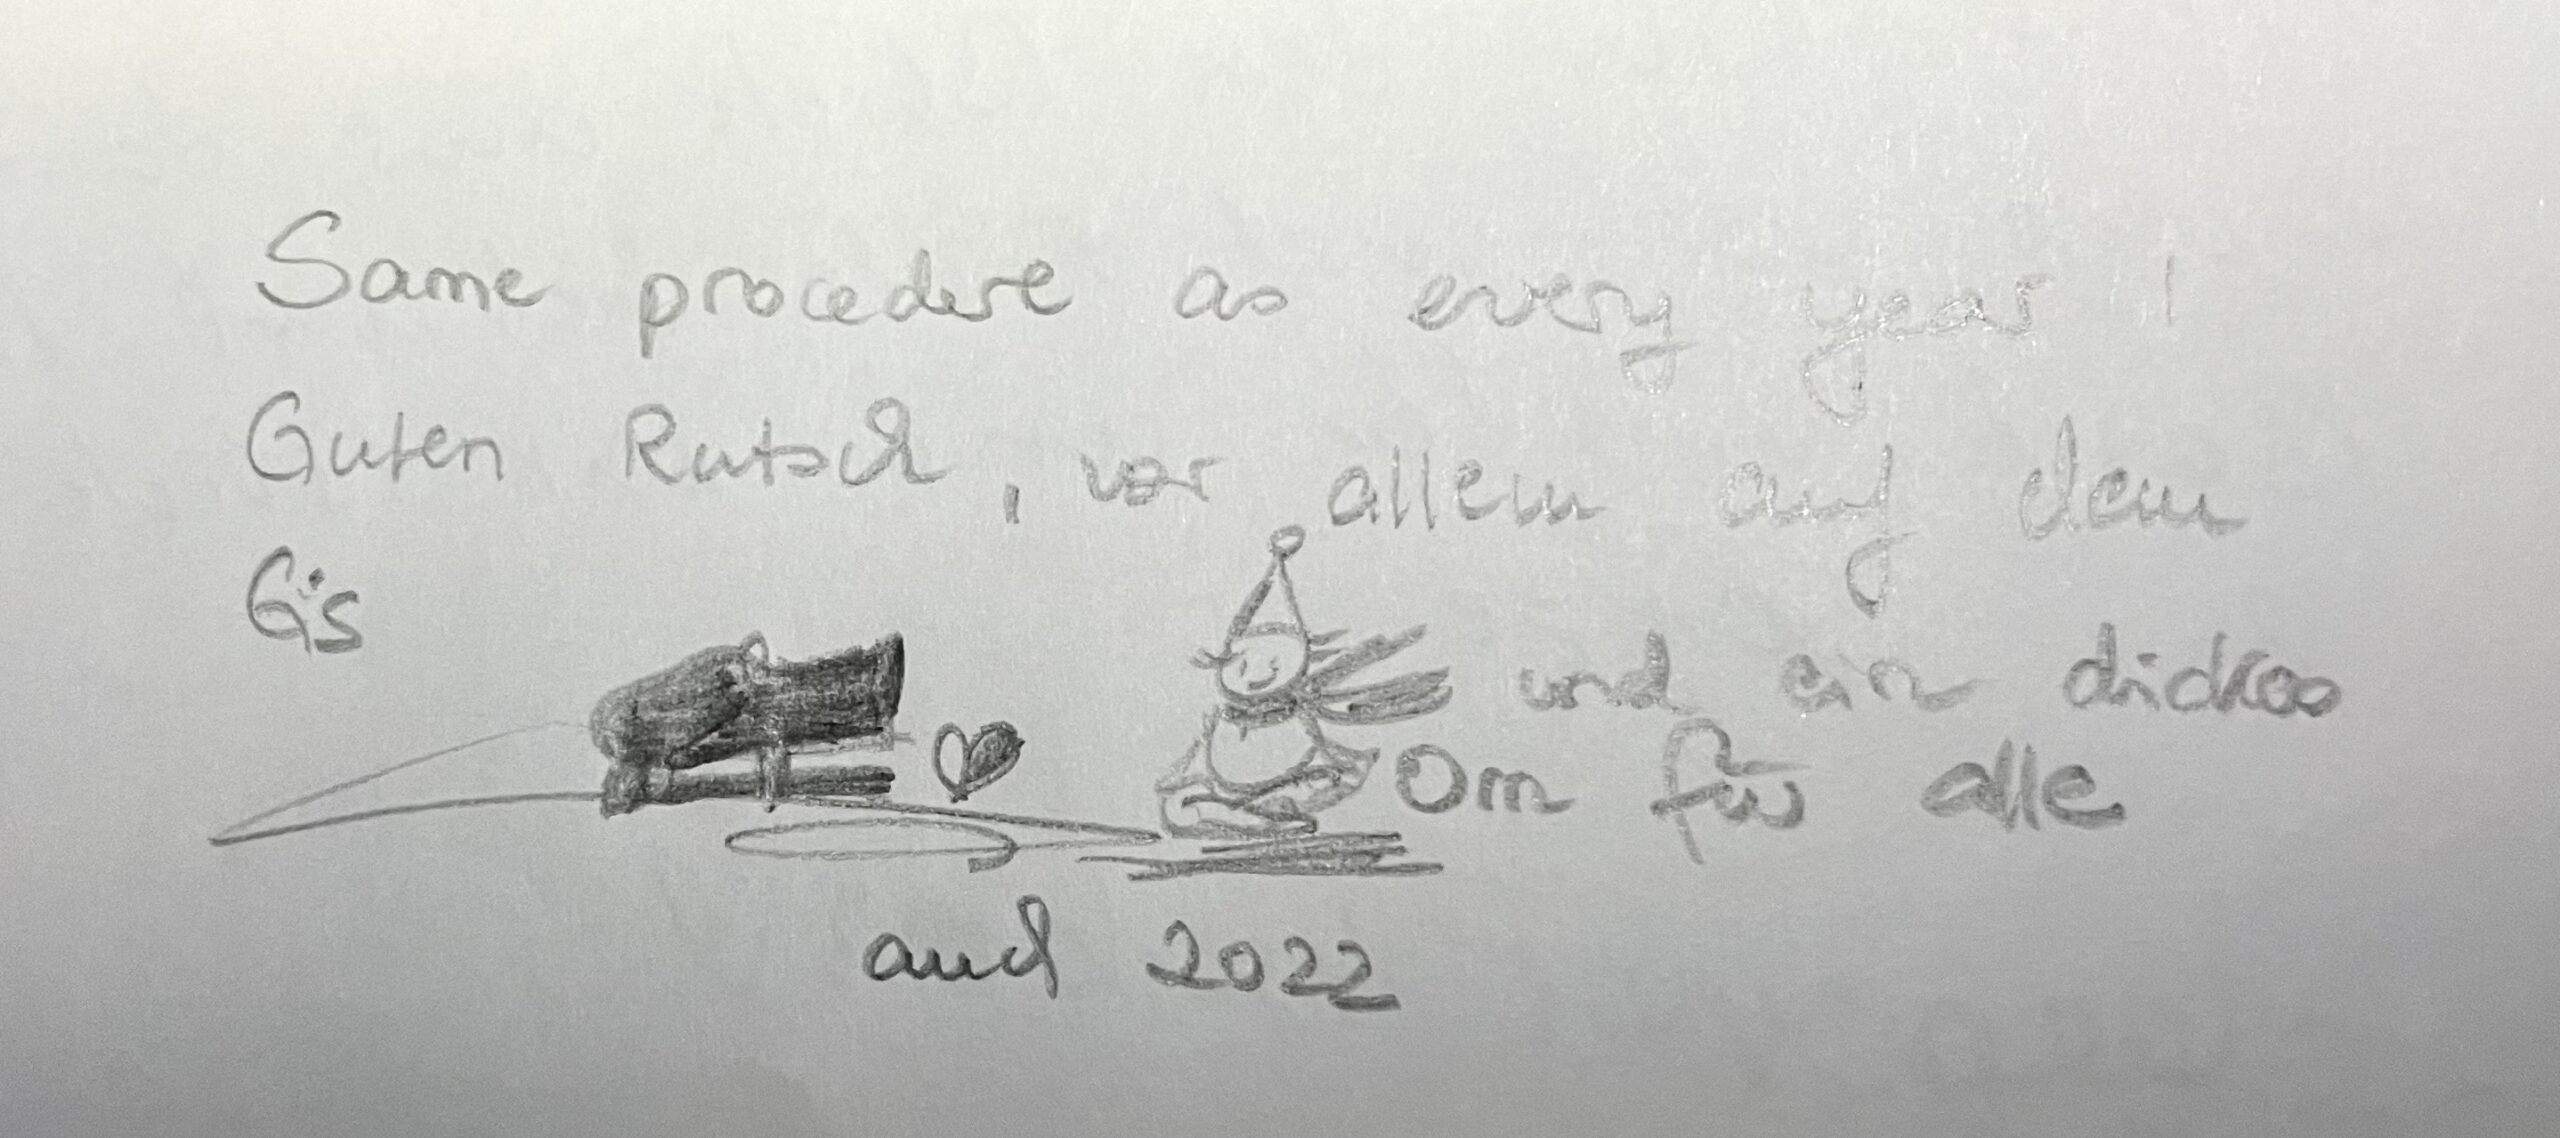 Same procedere as every year !
Guten Rutsch, vor allem auf dem
G's
und ein dickes
Om für alle
auch 2022